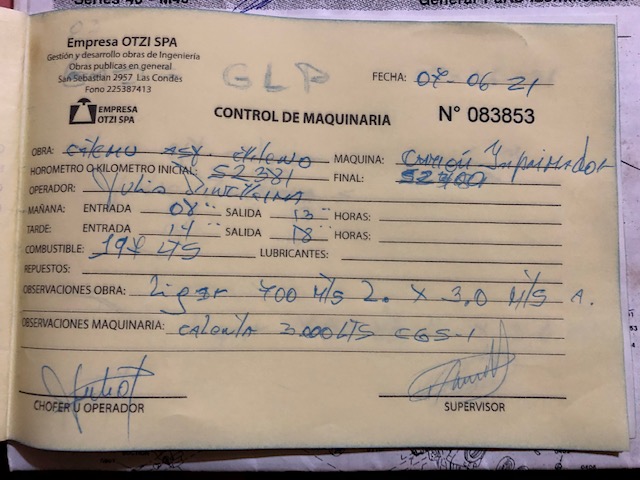 Empresa OTZI SPA
Gestión y desarrollo obras de Ingeniería
Obras publicas en general
San Sebastian 2957 Las Condes
Fono 225387413
GLP
FECHA: 08-06-21
EMPRESA
OTZI SPA
CONTROL DE MAQUINARIA N° 083853
OBRA: MAQUINA: Camión Imprimador
HOROMETRO O KILOMETRO INICIAL: 52381 FINAL:
OPERADOR: Julio
MAÑANA: ENTRADA 08:: SALIDA 13:: HORAS:
TARDE: ENTRADA 14:: SALIDA 18:: HORAS:
COMBUSTIBLE: 198 LTS LUBRICANTES:
REPUESTOS:
OBSERVACIONES OBRA: 400 M/S 2.0 X 3,0 M/S
OBSERVACIONES MAQUINARIA: 3.000 LTS
CHOFER U OPERADOR
SUPERVISOR